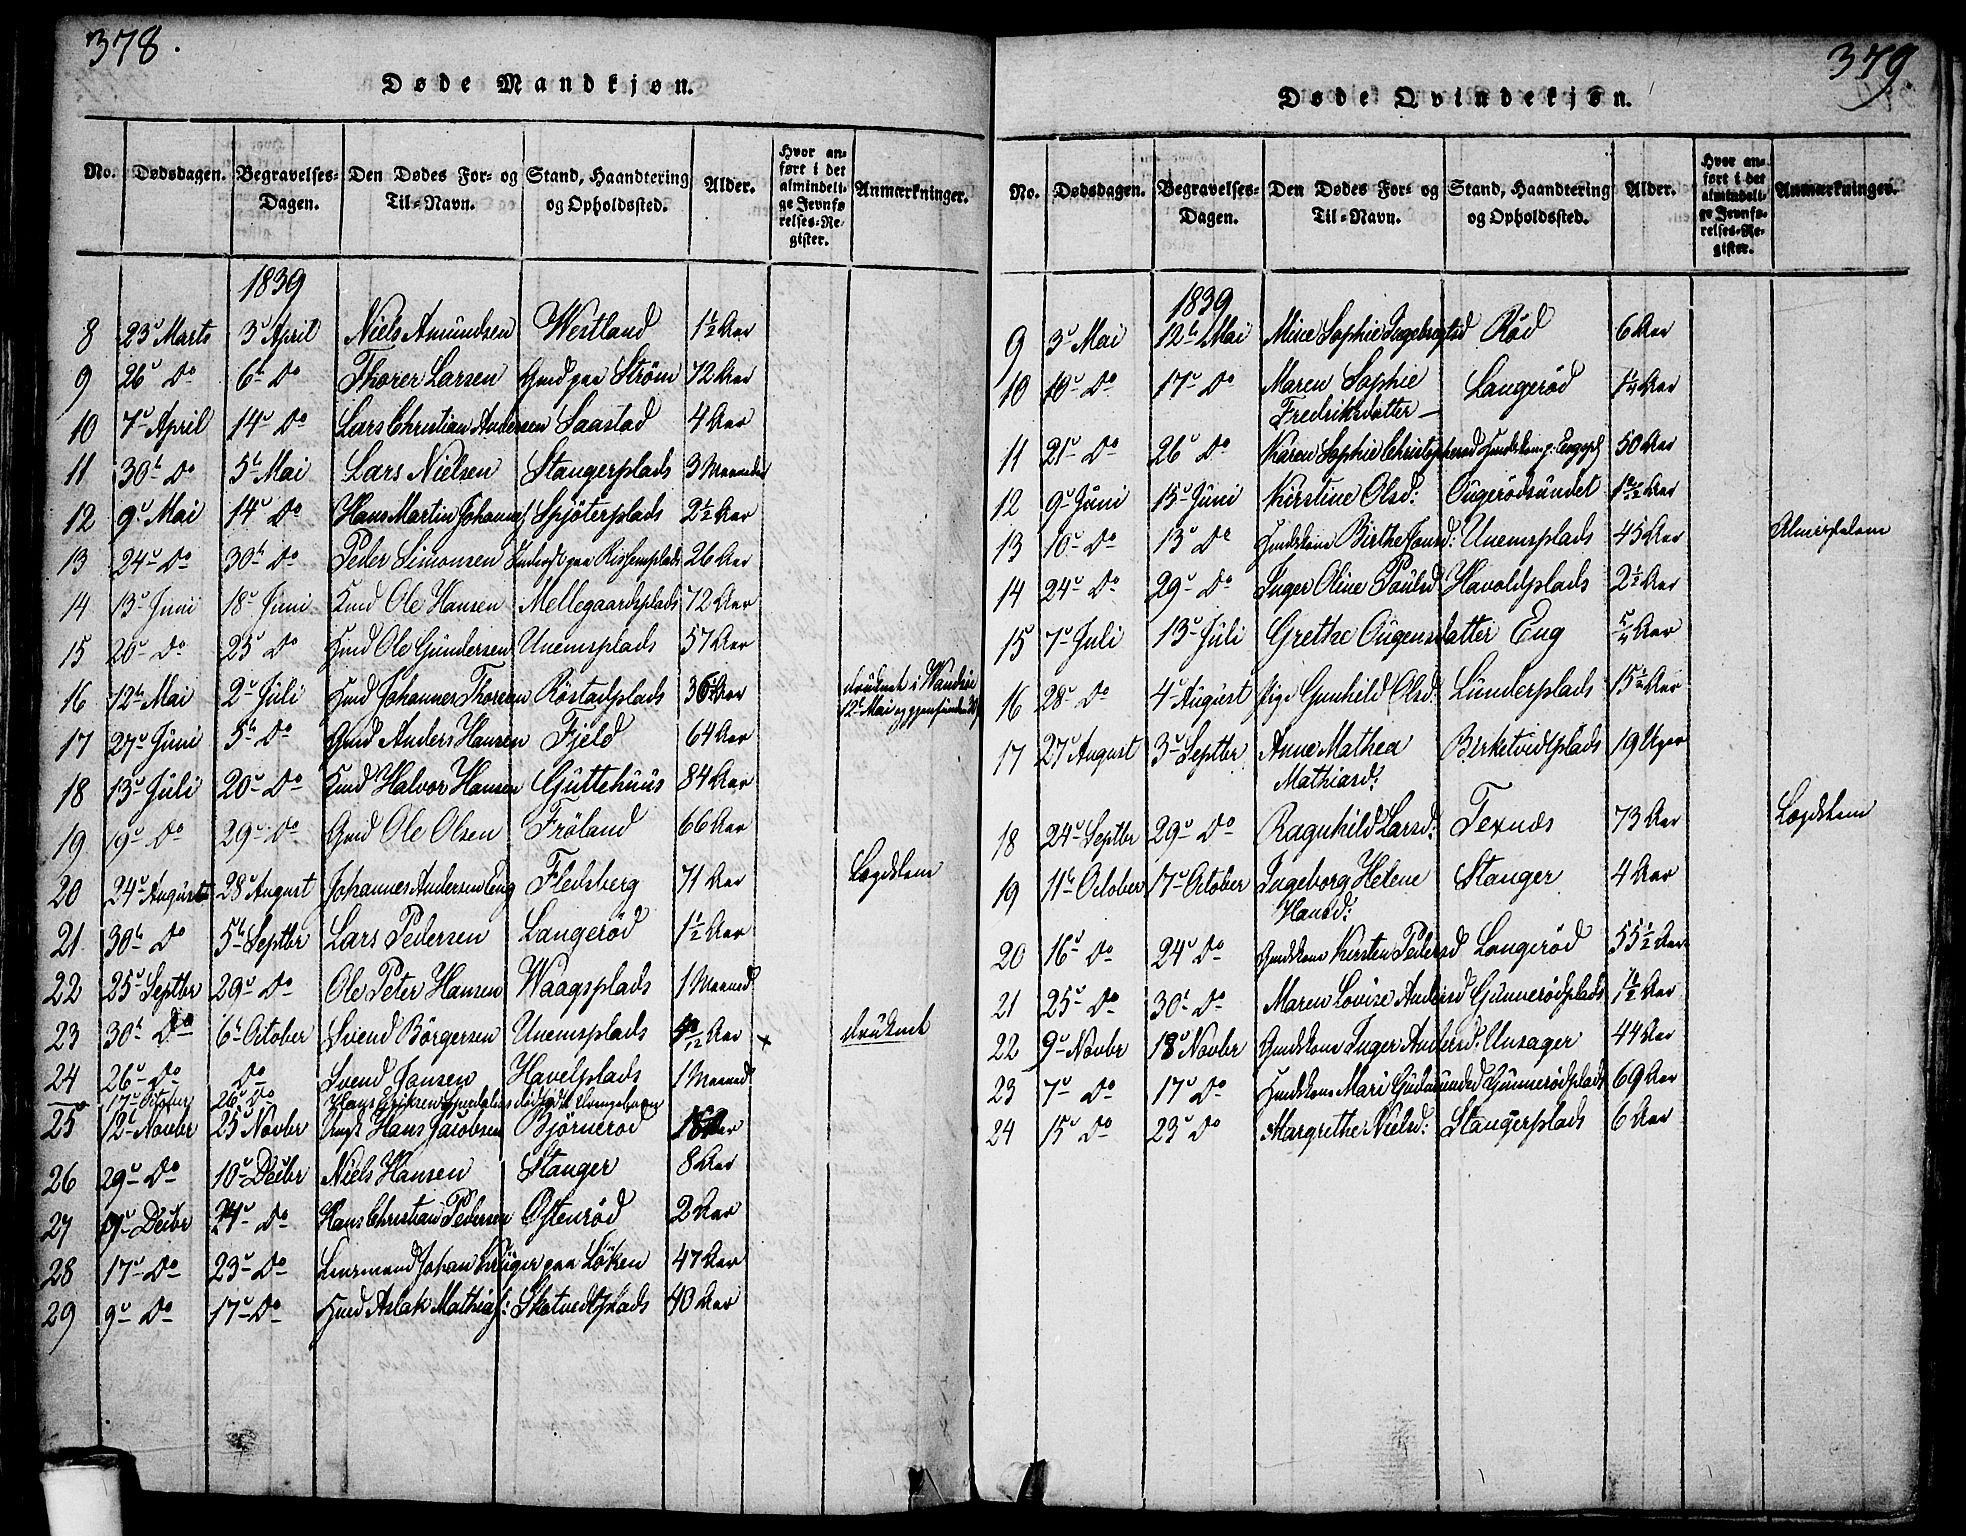 378.
Døde Mandkjøn.
No. Dødsdagen. Begravelses-Dagen. Den Dødes For- og Til-Navn. Stand, Haandtering og Opholdssted. Alder. Hvor anført i det almindelige Jevnførelses-Register. Anmærkninger.
1839
8 23d Marts 3d April Niels Amundsen Westland 1½ Aar
9 26d Do 6t Do Thorer Larsen Gmd paa Strøm 72 Aar
10 7d April 14d Do Lars Christian Andersen Saastad 4 Aar
11 30t Do 5t Mai Lars Nielsen Stangerplads 3 Maaneder
12 9d Mai 14d Do Hans Martin Johannes Spjöterplads 2½ Aar
13 24d Do 30t Do Peder Simonsen 26 Aar
14 13d Juni 18d Juni Hmd Ole Hansen Mellegaardsplads 72 Aar
15 20d Do 25d Do Hmd Ole Gundersen Unemsplads 57 Aar
16 12t Mai 2d Juli Hmd Johannes Thoresen Röstadplads 36 Aar druknet i Vandsiö 12t Mai
17 27d Juni 5t Do Gmd Anders Hansen Fjeld 64 Aar
18 13d Juli 20d Do Hmd Halvor Hansen Guttehuus 84 Aar
19 19d Do 29d Do Gmd Ole Olsen Fröland 66 Aar
20 24d August 28d August Johannes Andersen Eng Fledsberg 71 Aar Lægdslem
21 30t Do 5t Septbr Lars Pedersen Langerød 1½ Aar
22 25d Septbr 29d Do Ole Peter Hansen Waagsplads 1 Maaned
23 30t Do 6t October Svend Börgersen Unemsplads Aar × druknet
24 26d Do Do Svend Jansen Havelplads 1 Maaned
17d October 26d Do Hans Eriksen
25 12t Novbr 25d Novbr Hans Jacobsen Björnerød Aar
26 29d Do 10d Decbr Niels Hansen Stanger 8 Aar
27 Decbr Do Hans Christian Pedersen Ostenrød 2 Aar
28 17d Do 23d Do Lensmand Johan Krüger paa Löken 47 Aar
29 9d Do 17d Do Hmd Aslak Mathias: Skotvedtplads 40 Aar
379.
Døde Qvindekjøn.
No. Dødsdagen. Begravelses-Dagen. Den Dødes For- og Til-Navn. Stand, Haandtering og Opholdssted. Alder. Hvor anført i det almindelige Jevnførelses-Register. Anmærkninger.
1839
9 3d Mai 12t Mai Mine Sophie Ingebregtsd Rød 6 Aar
10 10d Do 17d Do Maren Sophie Langerød 1¼ Aar
Fredriksdatter
11 21d Do 26d Do Karen Sophie Christophersd 50 Aar
12 9d Juni 15d Juni Kirstine Olsd: Ougerødsundet Aar
13 10d Do 13d Do Hmdskone Birthe Jonsd: Unemsplads 45 Aar Almislem
14 24d Do 29d Do Inger Oline Paulsd Havoldplads 2½ Aar
15 7d Juli 13d Juli Grethe Ougensdatter Eng 5/4 Aar
16 28d Do 4d August Pige Gunhild Olsd: Lunderplads 15½ Aar
17 27d August 3d Septbr Anne Mathea Birketvidtplads 19 Uger
Mathiasd:
18 24d Septbr 29d Do Ragnhild Larsd: Texnæs 73 Aar Lægdslem
19 11t October 17d October Ingeborg Helene Stanger 4 Aar
Hansd:
20 16d Do 24d Do Gmdskone Kirsten Pedersd Langerød 55½ Aar
21 25d Do 30t Do Maren Lovise Andersd Gunnerødplads 1½ Aar
22 9d Novbr 18d Novbr Gmdskone Inger Andersd: Unsager 44 Aar
23 7d Do 17d Do Hmdskone Mari Gudmundsd Gunnerødplads 69 Aar
24 15d Do 23d Do Margrethe Nielsd: Stangerplads 6 Aar